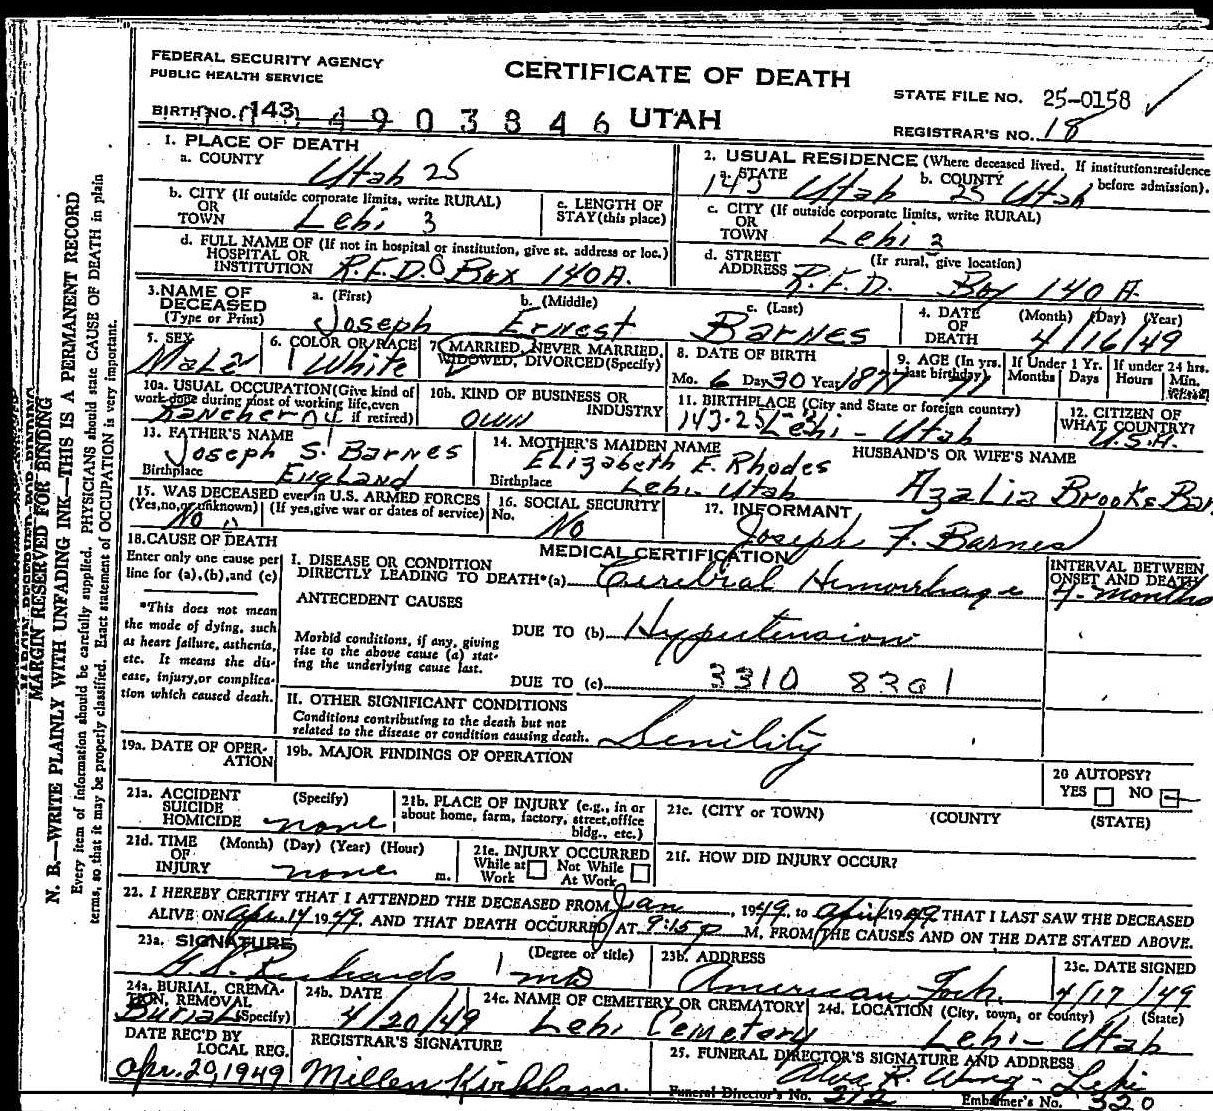 FEDERAL SECURITY AGENCY
PUBLIC HEALTH SERVICE
CERTIFICATE OF DEATH
STATE FILE NO. 25-0158
BIRTH NO. 143
4903846 UTAH
REGISTRAR'S NO. 18
1. PLACE OF DEATH
a. COUNTY
Utah 25
2. USUAL RESIDENCE (Where deceased lived. If institution:residence before admission).
a. STATE b. COUNTY
143 Utah 25 Utah
b. CITY (If outside corporate limits, write RURAL)
OR
TOWN Lehi 3
c. LENGTH OF
STAY (this place)
c. CITY (If outside corporate limits, write RURAL)
OR
TOWN Lehi 3
d. FULL NAME OF (If not in hospital or institution, give st. address or loc.)
HOSPITAL OR
INSTITUTION R.F.D. Box 140A.
d. STREET (If rural, give location)
ADDRESS R.F.D. Box 140 A.
3. NAME OF
DECEASED
(Type or Print)
a. (First) b. (Middle) c. (Last)
Joseph Ernest Barnes
4. DATE
OF
DEATH
(Month) (Day) (Year)
4/16/49
5. SEX
Male
6. COLOR OR RACE
White
7. MARRIED, NEVER MARRIED,
WIDOWED, DIVORCED (Specify)
8. DATE OF BIRTH
Mo. 6 Day 30 Year 1877
9. AGE (In yrs.
last birthday) 71
If Under 1 Yr.
Months Days
If under 24 hrs.
Hours Min.
10a. USUAL OCCUPATION (Give kind of
work done during most of working life, even
if retired)
Rancher 04
10b. KIND OF BUSINESS OR
INDUSTRY
own
11. BIRTHPLACE (City and State or foreign country)
143-25 Lehi - Utah
12. CITIZEN OF
WHAT COUNTRY?
U.S.A.
13. FATHER'S NAME
Joseph S. Barnes
Birthplace England
14. MOTHER'S MAIDEN NAME
Elizabeth E. Rhodes
Birthplace Lehi, Utah
HUSBAND'S OR WIFE'S NAME
Azalia Brooks Bar
15. WAS DECEASED ever in U.S. ARMED FORCES
(Yes, no, or unknown) (If yes, give war or dates of service)
No
16. SOCIAL SECURITY
No. No
17. INFORMANT
Joseph F. Barnes
18. CAUSE OF DEATH
Enter only one cause per
line for (a), (b), and (c)
*This does not mean
the mode of dying, such
as heart failure, asthenia,
etc. It means the dis-
ease, injury, or complica-
tion which caused death.
MEDICAL CERTIFICATION
I. DISEASE OR CONDITION
DIRECTLY LEADING TO DEATH*(a) Cerebral Hemorrhage
INTERVAL BETWEEN
ONSET AND DEATH
4 months
ANTECEDENT CAUSES
Morbid conditions, if any, giving
rise to the above cause (a) stat-
ing the underlying cause last.
DUE TO (b) Hypertension
DUE TO (c) 3310
II. OTHER SIGNIFICANT CONDITIONS
Conditions contributing to the death but not
related to the disease or condition causing death.
Senility
19a. DATE OF OPER-
ATION
19b. MAJOR FINDINGS OF OPERATION
20 AUTOPSY?
YES NO
21a. ACCIDENT
SUICIDE
HOMICIDE
(Specify)
none
21b. PLACE OF INJURY (e.g., in or
about home, farm, factory, street, office
bldg., etc.)
21c. (CITY or TOWN) (COUNTY)
(STATE)
21d. TIME
OF
INJURY
(Month) (Day) (Year) (Hour)
none m.
21e. INJURY OCCURRED
While at Work
Not While At Work
21f. HOW DID INJURY OCCUR?
22. I HEREBY CERTIFY THAT I ATTENDED THE DECEASED FROM Jan, 1949, to April 1949 THAT I LAST SAW THE DECEASED
ALIVE ON Apr. 14 1949, AND THAT DEATH OCCURRED AT 9:15 P M, FROM THE CAUSES AND ON THE DATE STATED ABOVE.
23a. SIGNATURE
(Degree or title)
G.S. Richards MD
23b. ADDRESS
American Fork
23c. DATE SIGNED
4/17/49
24a. BURIAL, CREMA-
TION, REMOVAL
(Specify)
Burial
24b. DATE
4/20/49
24c. NAME OF CEMETERY OR CREMATORY
Lehi Cemetary
24d. LOCATION (City, town, or county) (State)
Lehi - Utah
DATE REC'D BY
LOCAL REG.
Apr. 20, 1949
REGISTRAR'S SIGNATURE
Millen Kirkham
25. FUNERAL DIRECTOR'S SIGNATURE AND ADDRESS
Alva R. Wing - Lehi
Funeral Director's No. Embalmer's No. 320
MARGIN RESERVED FOR BINDING
N. B.—WRITE PLAINLY WITH UNFADING INK—THIS IS A PERMANENT RECORD
Every item of information should be carefully supplied. PHYSICIANS should state CAUSE OF DEATH in plain
terms, so that it may be properly classified. Exact statement of OCCUPATION is very important.